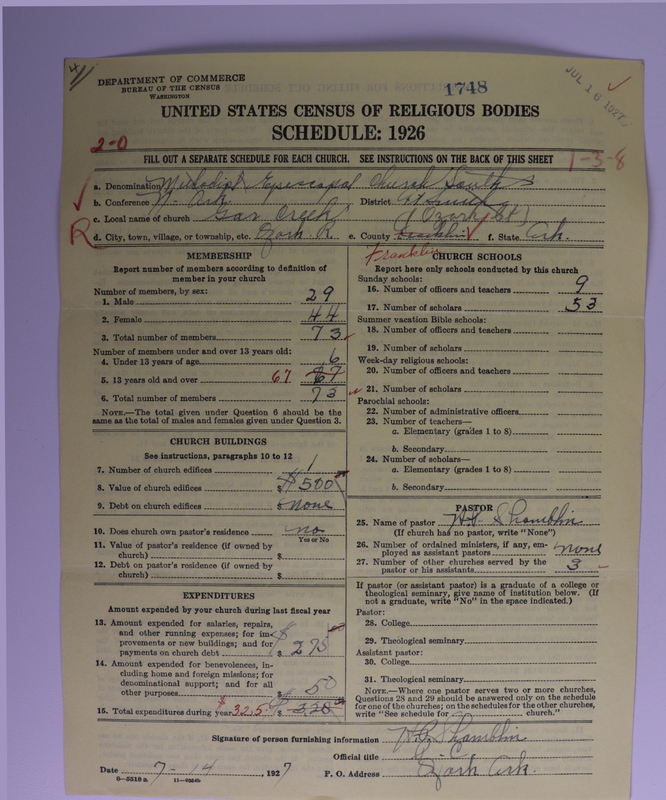 DEPARTMENT OF COMMERCE
BUREAU OF THE CENSUS
WASHINGTON
1748
JUL 16 1927
UNITED STATES CENSUS OF RELIGIOUS BODIES
SCHEDULE: 1926
2-0
FILL OUT A SEPARATE SCHEDULE FOR EACH CHURCH. SEE INSTRUCTIONS ON THE BACK OF THIS SHEET
1-3-8
a. Denomination Methodist Episcopal Church South
b. Conference N. Ark District
c. Local name of church Gar Creek (Ozark Ct)
R d. City, town, village, or township, etc. Ozark R. e. County Franklin f. State Ark.
Franklin
MEMBERSHIP
Report number of members according to definition of
member in your church
Number of members, by sex:
1. Male 29
2. Female 44
3. Total number of members 73
Number of members under and over 13 years old:
4. Under 13 years of age 6
5. 13 years old and over 67 67
6. Total number of members 73
NOTE.—The total given under Question 6 should be the
same as the total of males and females given under Question 3.
CHURCH BUILDINGS
See instructions, paragraphs 10 to 12
7. Number of church edifices 1
8. Value of church edifices $ $500
9. Debt on church edifices $ none
10. Does church own pastor's residence? no
Yes or No
11. Value of pastor's residence (if owned by
church) $
12. Debt on pastor's residence (if owned by
church) $
EXPENDITURES
Amount expended by your church during last fiscal year
13. Amount expended for salaries, repairs,
and other running expenses; for im-
provements or new buildings; and for
payments on church debt $ 275
14. Amount expended for benevolences, in-
cluding home and foreign missions; for
denominational support; and for all
other purposes $ 50
15. Total expenditures during year $325 $ 328
CHURCH SCHOOLS
Report here only schools conducted by this church
Sunday schools:
16. Number of officers and teachers 9
17. Number of scholars 53
Summer vacation Bible schools:
18. Number of officers and teachers
19. Number of scholars
Week-day religious schools:
20. Number of officers and teachers
21. Number of scholars
Parochial schools:
22. Number of administrative officers
23. Number of teachers—
a. Elementary (grades 1 to 8)
b. Secondary
24. Number of scholars—
a. Elementary (grades 1 to 8)
b. Secondary
PASTOR
25. Name of pastor Shamblin
(If church has no pastor, write "None")
26. Number of ordained ministers, if any, em-
ployed as assistant pastors none
27. Number of other churches served by the
pastor or his assistants 3
If pastor (or assistant pastor) is a graduate of a college or
theological seminary, give name of institution below. (If
not a graduate, write "No" in the space indicated.)
Pastor:
28. College
29. Theological seminary
Assistant pastor:
30. College
31. Theological seminary
NOTE.—Where one pastor serves two or more churches,
Questions 28 and 29 should be answered only on the schedule
for one of the churches; on the schedules for the other churches,
write "See schedule for church."
Signature of person furnishing information Shamblin
Official title P. C.
Date 7-14, 1927 P. O. Address Ozark Ark.